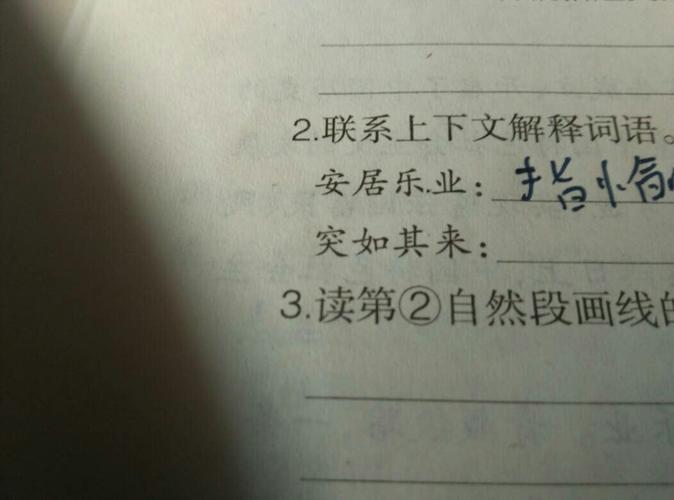 2.联系上下文解释词语。
安居乐业：指
突如其来：
3.读第②自然段画线的